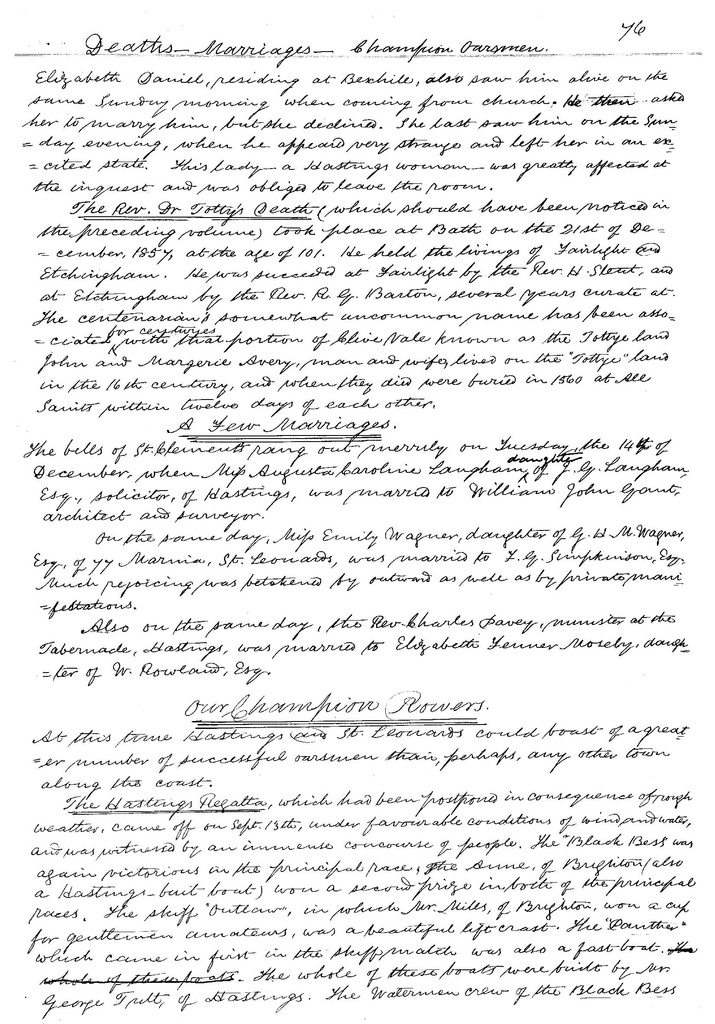 76
Deaths — Marriages — Champion Oarsmen.
Elizabeth Daniel, residing at Bexhile, also saw him alive on the
same Sunday morning when coming from church. He then asked
her to marry him, but she declined. She last saw him on the Sun=
=day evening, when he appeared very strange and left her in an ex=
=cited state. This lady — a Hastings woman — was greatly affected at
the inquest and was obliged to leave the room.
The Rev. Dr Totty's Death (which should have been noticed in
the preceding volume) took place at Bath on the 21st of De=
=cember, 1857, at the age of 101. He held the livings of Fairlight and
Etchingham. He was succeeded at Fairlight by the Rev. H. Stent, and
at Etchingham by the Rev. R. G. Barton, several years curate at.
The centenarian's somewhat uncommon name has been asso=
=ciated for centuries with that portion of Clive Vale known as the Tottye land
John and Margerie Avery, man and wife, lived on the "Tottye" land
in the 16th century, and when they died were buried in 1560 at All
Saints within twelve days of each other.
A Few Marriages.
The bells of St. Clements rang out merrily on Tuesday, the 14th of
December, when Miss Augusta Caroline Langham, daughter of F. G. Langham
Esq., solicitor, of Hastings, was married to William John Gant,
architect and surveyor.
On the same day, Miss Emily Wagner, daughter of G. H. M. Wagner,
Esq., of 77 Marina, St. Leonards, was married to F. G. Simpkinson, Esq.
Much rejoicing was betokened by outward as well as by private mani
=festations.
Also on the same day, the Rev. Charles Davey, minister at the
Tabernacle, Hastings, was married to Elizabeth Fenner Moseby, daugh
=ter of W. Rowland, Esq.
Our Champion Rowers.
At this time Hastings and St. Leonards could boast of a great
=er number of successful oarsmen than, perhaps, any other town
along the coast.
The Hastings Regatta, which had been postponed in consequence of rough
weather, came off on Sept. 13th, under favourable conditions of wind and water,
and was witnessed by an immense concourse of people. The "Black Bess was
again victorious in the principal race; the Anne, of Brighton (also
a Hastings-built boat) won a second prize in both of the principal
races. The skiff "Outlaw", in which Mr. Miles, of Brighton, won a cup
for gentlemen amateurs, was a beautiful left craft. The "Panther"
which came in first in the skiff match was also a fast boat. The
whole of these boats. The whole of these boats were built by Mr.
George Tutt, of Hastings. The Watermen crew of the Black Bess